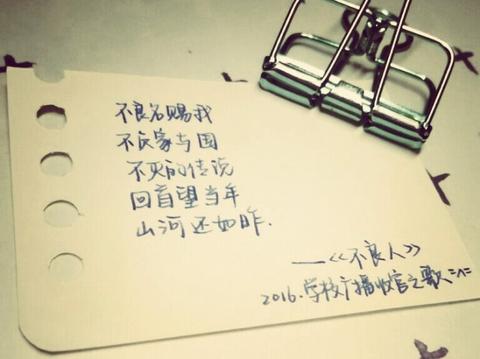 不良名赐我
不良家与国
不灭的传说
回首望当年
山河还如昨.
—《不良人》
2016.学校广播收官之歌=^=